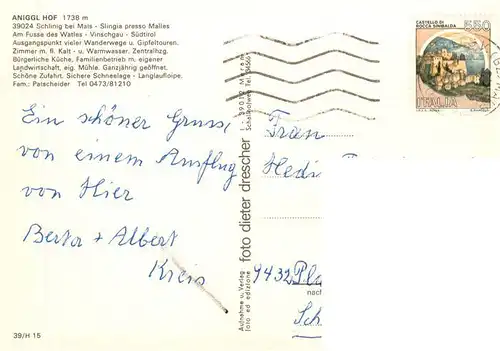 ANIGGL HOF 1738 m
39024 Schlinig bei Mals - Slingia presso Malles
Am Fusse des Watles - Vinschgau - Südtirol
Ausgangspunkt vieler Wanderwege u. Gipfeltouren.
Zimmer m. fl. Kalt - u. Warmwasser. Zentralhzg.
Bürgerliche Küche, Familienbetrieb m. eigener
Landwirtschaft, eig. Mühle. Ganzjährig geöffnet.
Schöne Zufahrt. Sichere Schneelage - Langlaufloipe.
Fam.: Patscheider Tel 0473/81210
Ein schöner Gruss,
von einem Ausflug
von Hier
Berta + Albert
Kreis
39/H 15
Aufnahme u. Verlag
foto ed edizione
foto dieter drescher
CASTELLO DI
ROCCA SINIBALDA
550
ITALIA
Frau
Hedi
9432
nach
Sch